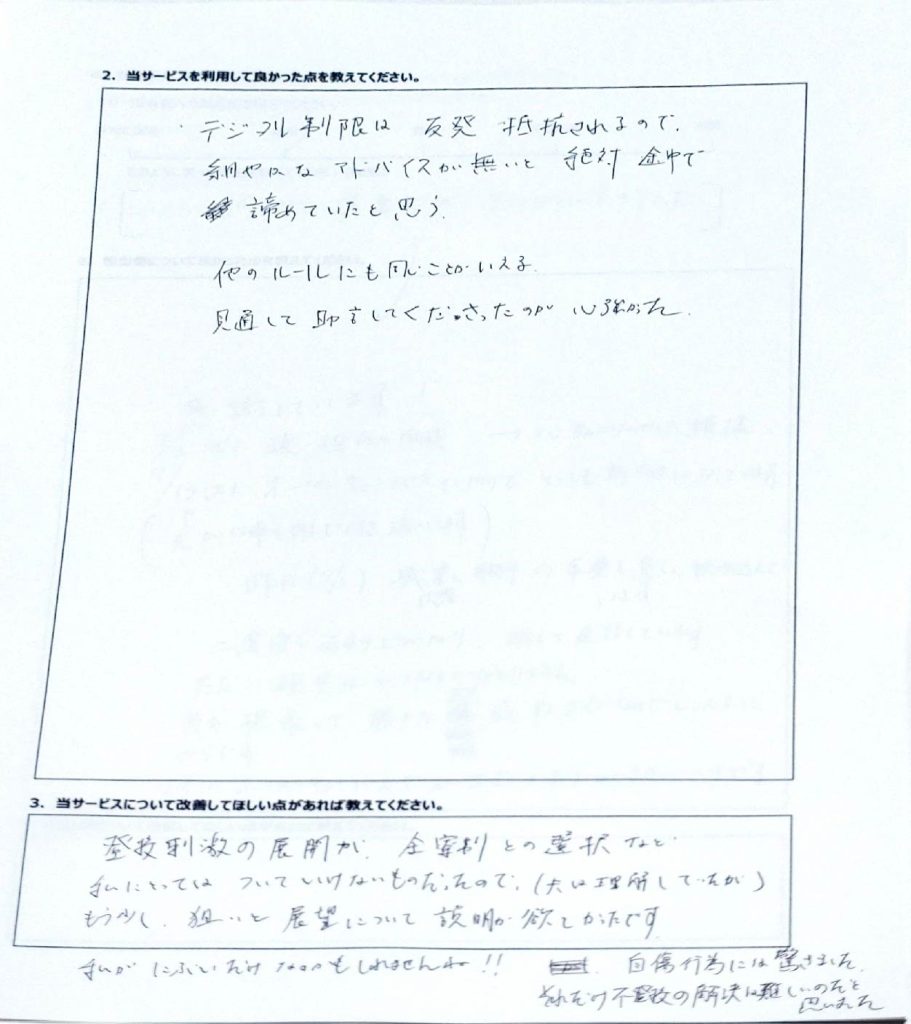 2. 当サービスを利用して良かった点を教えてください。
デジタル制限は 反発 抵抗されるので、
細やかなアドバイスが無いと 絶対 途中で
諦めていたと思う。
他のルールにも同じことがいえる。
見通して助言してくださったのが 心強かった。
3. 当サービスについて改善してほしい点があれば教えてください。
登校刺激の展開が、全寮制との選択など
私にとっては ついていけないものだったので、(夫は理解していたが)
もう少し、狙いと 展望について 説明が欲しかったです
私が にぶいだけ なのかもしれませんね!!
自傷行為には驚きました。
それだけ不登校の解決は難しいのだと
思いました